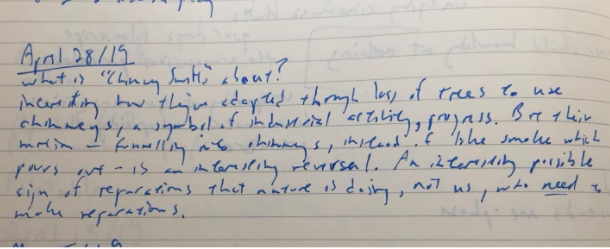 April 28/19
What is "Chimney Swifts" about?
interesting how they've adapted through loss of trees to use
chimneys, a symbol of industrial activity, progress. But their
motion – funnelling into chimneys, instead of like smoke which
pours out – is an interesting reversal. An interesting possible
sign of reparations that nature is doing, not us, who need to
make reparations.